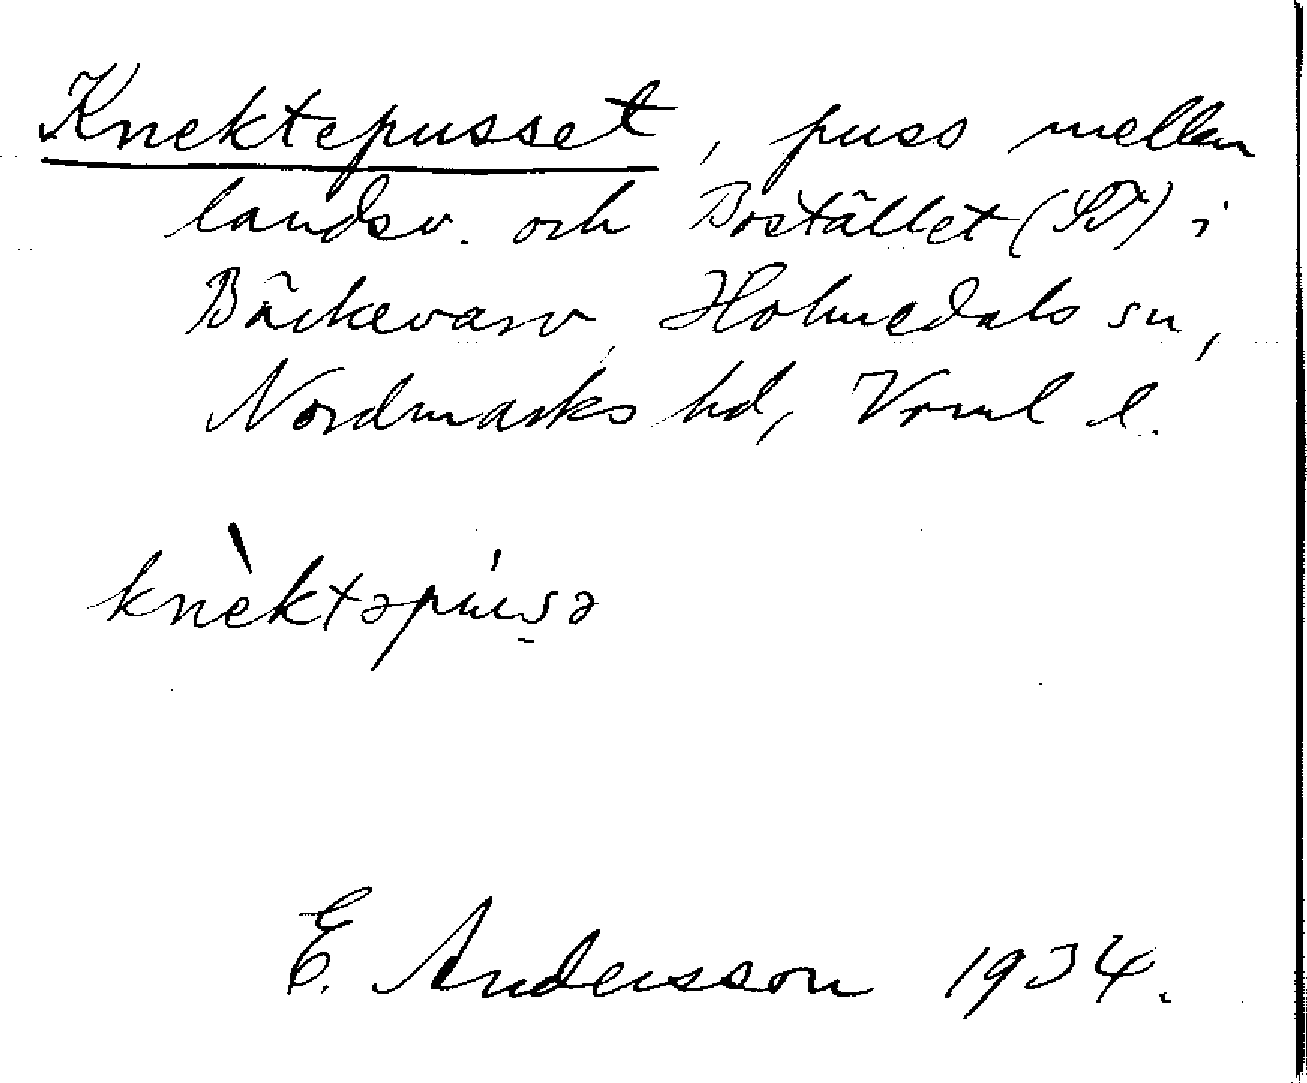 Knektepusset, puss mellan
landsv. och Bostället (ST) i
Bäckevarv, Holmedals sn,
Nordmarks hd, Vrml l.
knèktəpúsə
E. Andersson 1934.